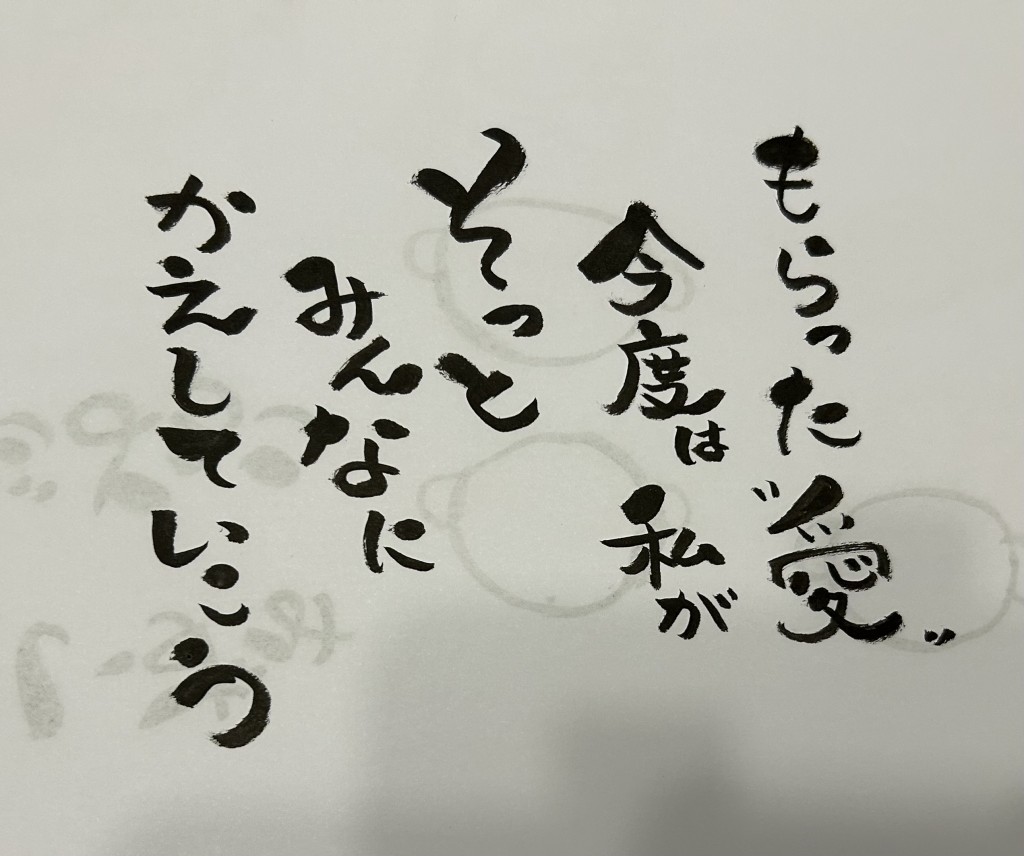 もらった〝愛〟
今度は私が
そっと
みんなに
かえしていこう